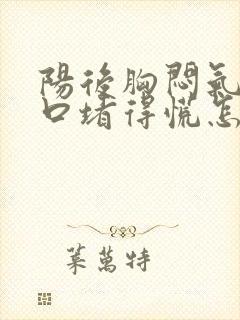 陽後胸悶氣
口堵得慌怎
葉萬特